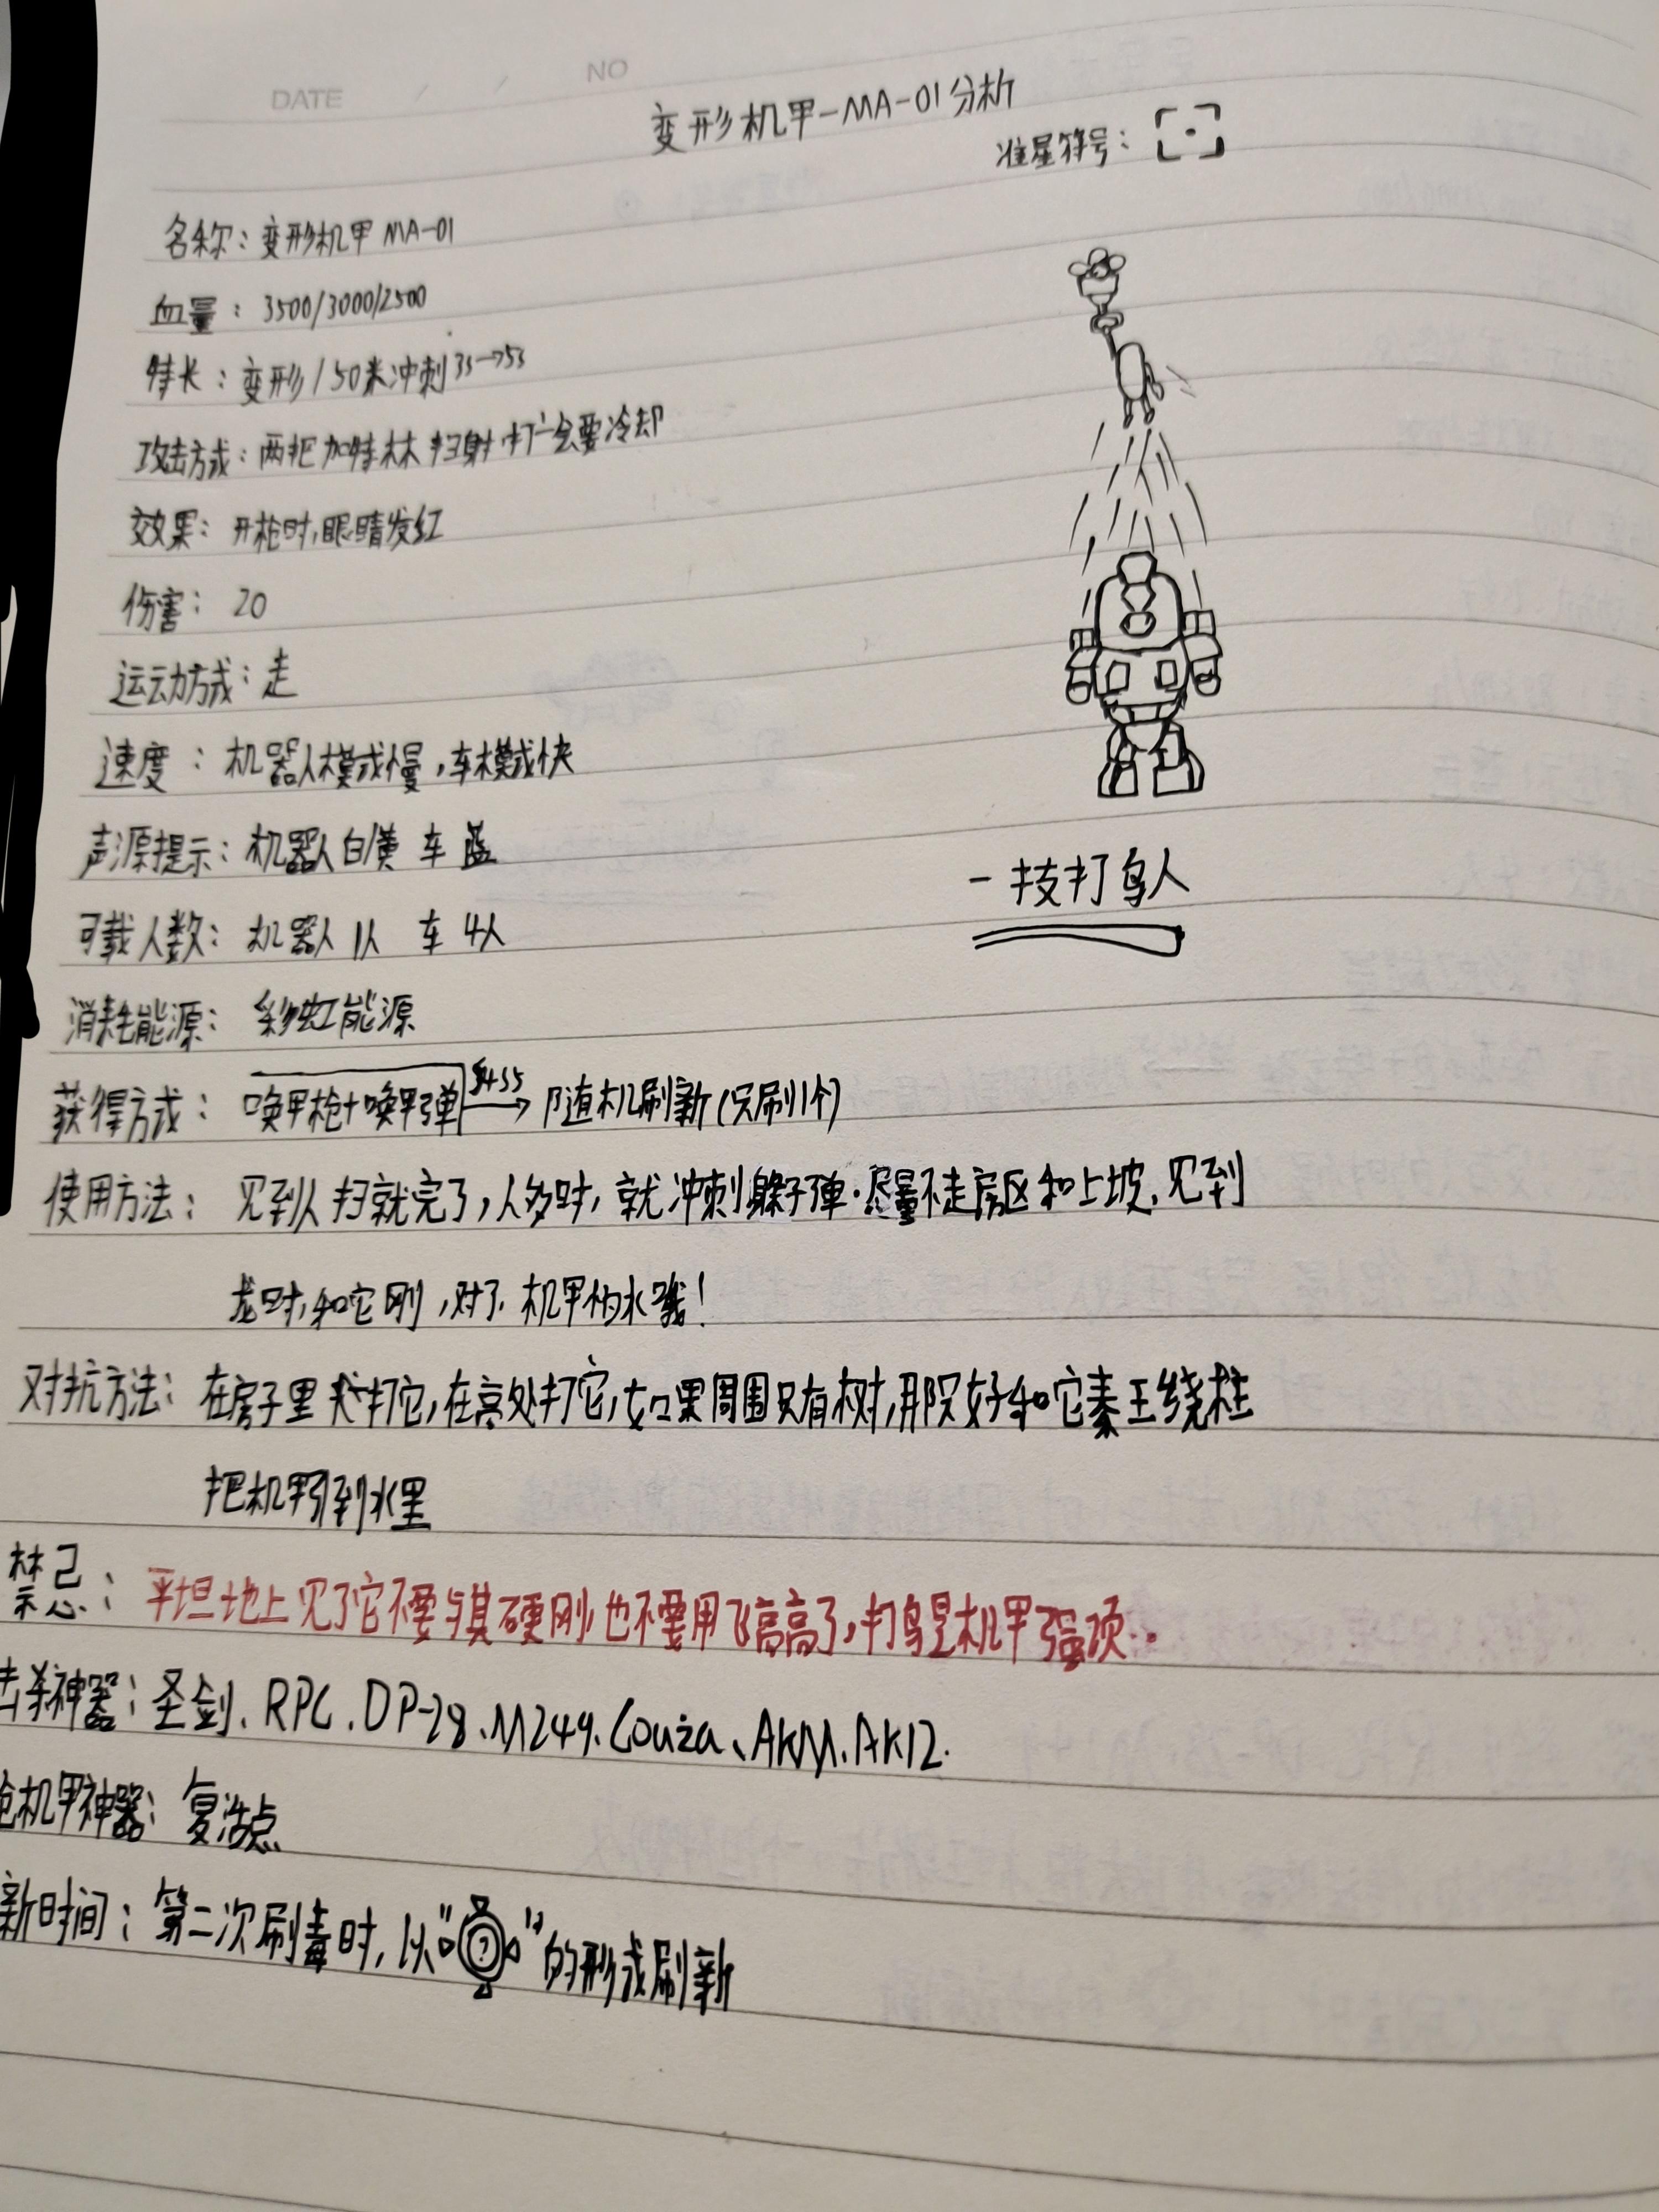 DATE / / NO
变形机甲-MA-01分析
准星符号：
名称：变形机甲 MA-01
血量：3500/3000/2500
特长：变形/50米冲刺 3s→5s
攻击方式：两把加特林 扫射 打一会要冷却
效果：开枪时,眼睛发红
伤害：20
运动方式：走
速度：机器人模式慢,车模式快
声源提示：机器人白/黄 车 蓝
一技打鸟人
可载人数：机器人 1人 车 4人
消耗能源：彩虹能源
获得方式：唤甲枪+唤甲弹 → 随机刷新(只刷1个)
使用方法：见到人扫就完了,人多时,就冲刺躲子弹.尽量不走房区和上坡.见到
龙时,和它刚,对了,机甲怕水哦!
对抗方法：在房子里 打它,在高处打它,如果周围只有树,那只好和它秦王绕柱
把机甲引到水里
禁忌：平坦地上见了它不要与其硬刚也不要用飞高高了,打鸟是机甲强项.
击杀神器：圣剑、RPC、DP-28、M249、Couza、AKM、AK12.
抢机甲神器：复活点
新时间：第二次刷毒时,以"?"的形式刷新